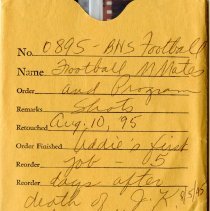 No. 0895-BNS Football
Name Football N Mates
Order and Program
Remarks Shots
Retouched Aug. 10, 95
Order Finished Addie's first
Reorder job - 5
Reorder days after
death of J. K. 8/5/95